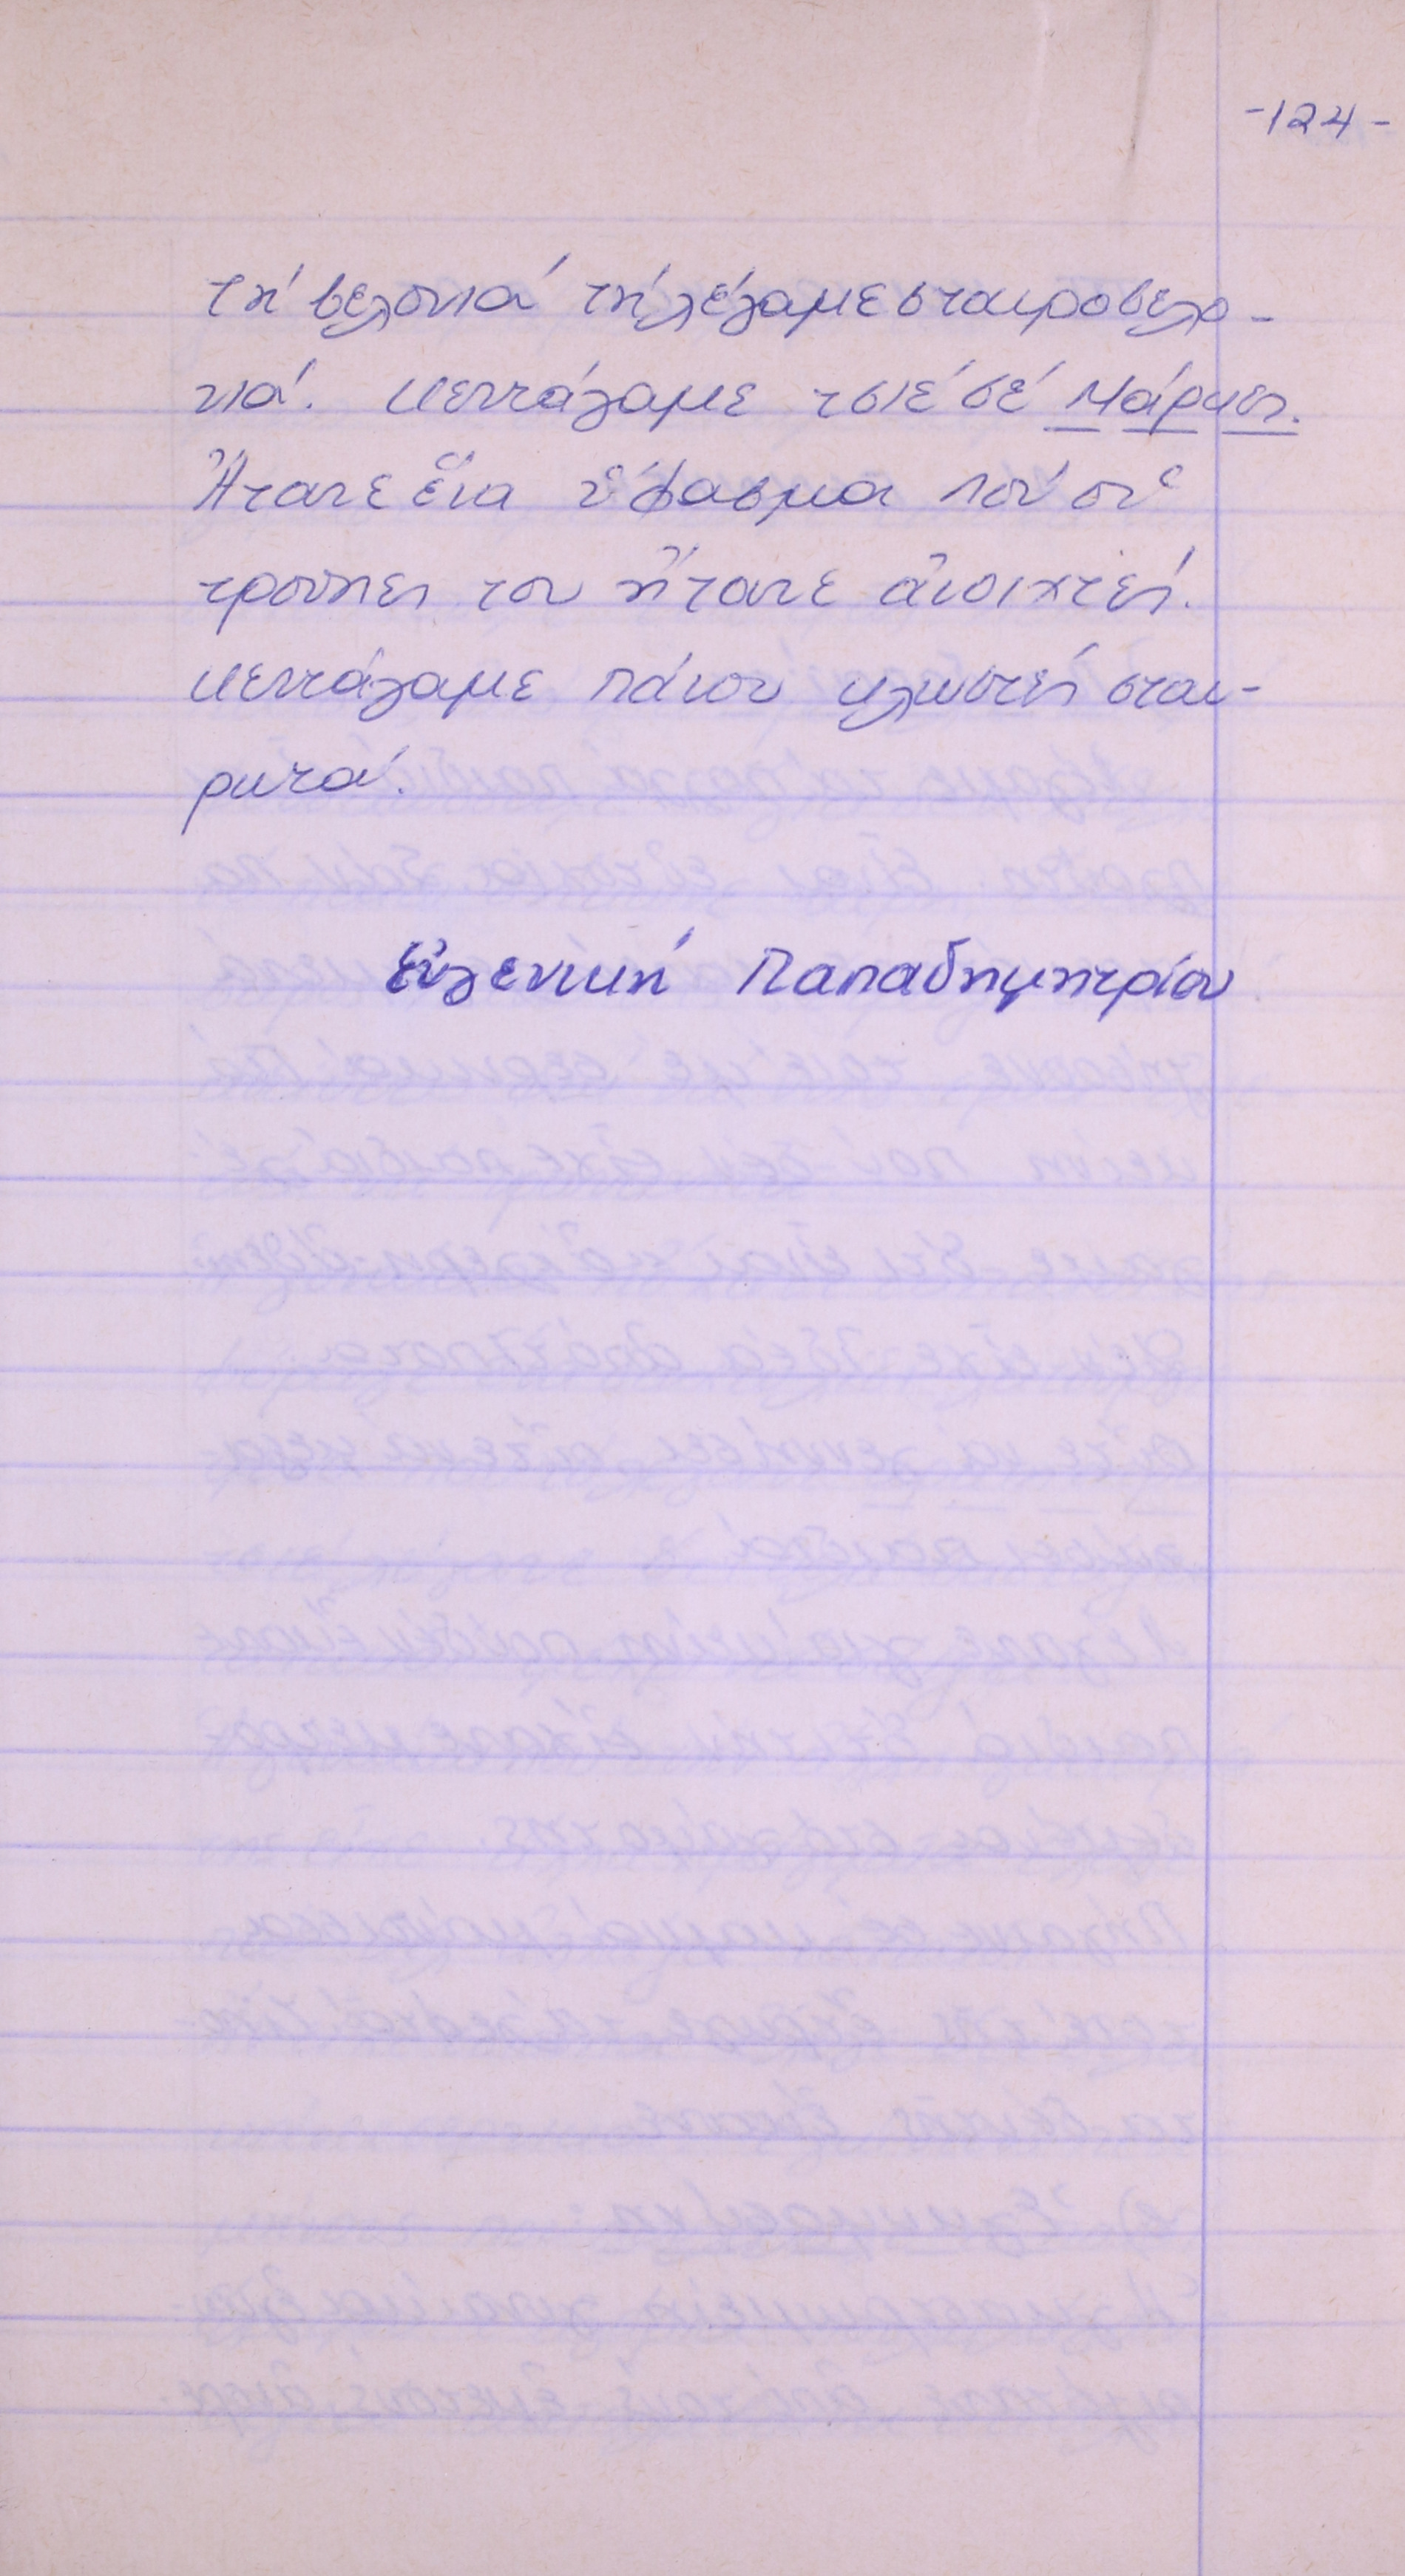 -124-
τή βελονιά τή λέγαμε σταυροβελο-
νιά. Κεντάγαμε τσιέ σέ Μάρκες.
Ἤτανε ἕνα ὕφασμα πού οἱ
τρούπες του ἤτανε ἀνοιχτές.
Κεντάγαμε πάνου κλωστές σταυ-
ρωτά.
Εὐγενική Παπαδημητρίου